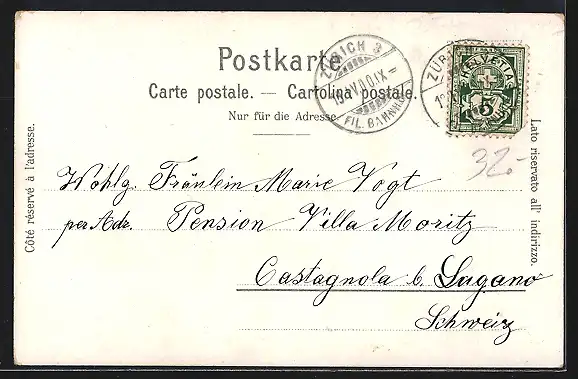 Postkarte
Carte postale. — Cartolina postale.
Nur für die Adresse
ZÜRICH 3
FIL. BAHNHOF
ZÜRICH
HELVETIA
5
32.-
Côté réservé à l'adresse.
Lato riservato all' indirizzo.
Wohlg. Fräulein Marie Vogt
per Adr. Pension Villa Moritz
Castagnola b. Lugano
Schweiz